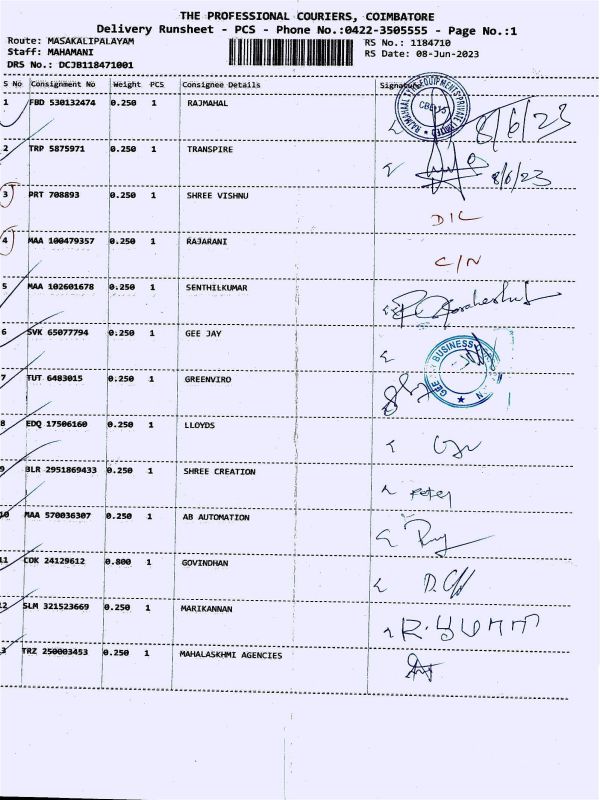 THE PROFESSIONAL COURIERS, COIMBATORE
Delivery Runsheet - PCS - Phone No.:0422-3505555 - Page No.:1
Route: MASAKALIPALAYAM RS No.: 1184710
Staff: MAHAMANI RS Date: 08-Jun-2023
DRS No.: DCJB118471001
S No Consignment No Weight PCS Consignee Details Signature
1 FBD 530132474 0.250 1 RAJMAHAL 8/6/23
2 TRP 5875971 0.250 1 TRANSPIRE 8/6/23
3 PRT 708893 0.250 1 SHREE VISHNU D/L
4 MAA 100479357 0.250 1 RAJARANI C/N
5 MAA 102601678 0.250 1 SENTHILKUMAR
6 SVK 65077794 0.250 1 GEE JAY
7 TUT 6483015 0.250 1 GREENVIRO
8 EDQ 17506160 0.250 1 LLOYDS
9 BLR 2951869433 0.250 1 SHREE CREATION
10 MAA 570036307 0.250 1 AB AUTOMATION
11 COK 24129612 0.800 1 GOVINDHAN
12 SLM 321523669 0.250 1 MARIKANNAN
3 TRZ 250003453 0.250 1 MAHALASKHMI AGENCIES